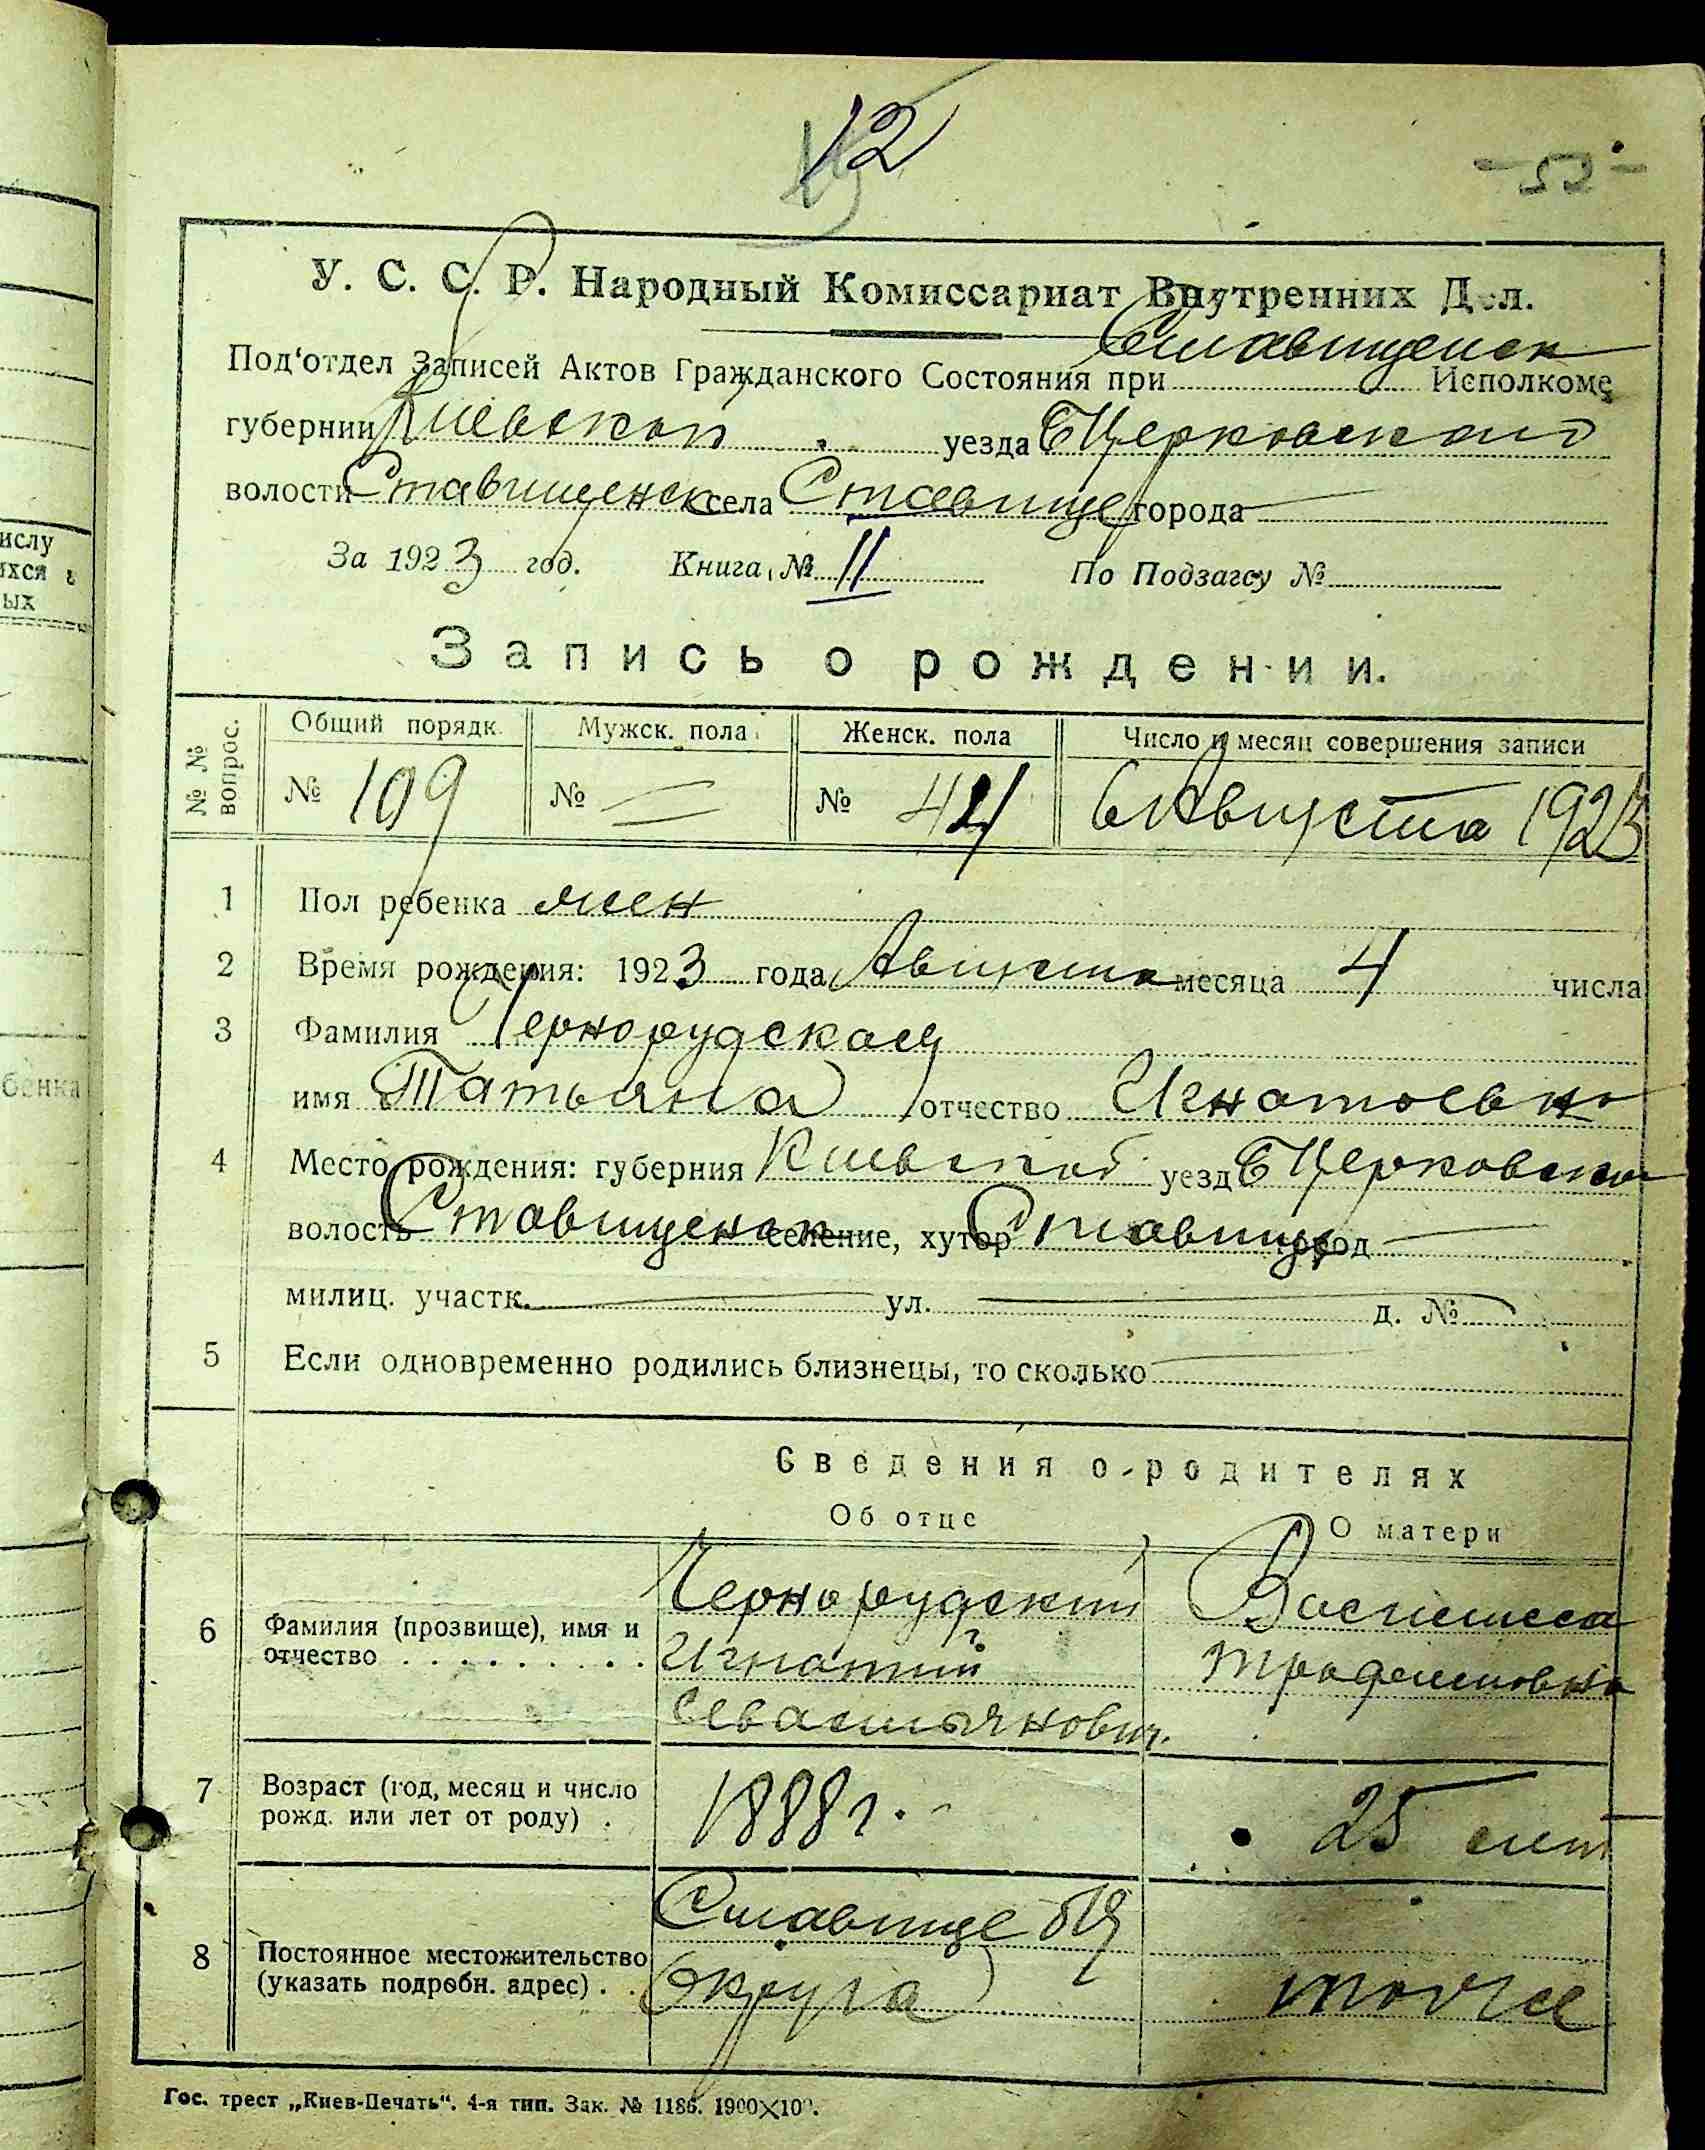 12
-53-
У. С. С. Р. Народный Комиссариат Внутренних Дел.
Под'отдел Записей Актов Гражданского Состояния при Ставищенск Исполкоме
губернии Киевской уезда БЦерковского
волости Ставищенск села Ставище города
За 1923 год. Книга № II По Подзагсу №
Запись о рождении.
№ № вопрос. Общий порядк. Мужск. пола Женск. пола Число и месяц совершения записи
№ 109 № — № 44 6 Августа 1923
1 Пол ребенка жен
2 Время рождения: 1923 года Августа месяца 4 числа
3 Фамилия Чернорудская
имя Татьяна отчество Игнатьевна
4 Место рождения: губерния Киевской уезд БЦерковско
волость Ставищенск селение, хутор Ставище город
милиц. участк. ул. д. №
5 Если одновременно родились близнецы, то сколько
Сведения о родителях
Об отце О матери
6 Фамилия (прозвище), имя и отчество
Чернорудский Васелиса
Игнатий Трофимовна
Севастьянович
7 Возраст (год, месяц и число рожд. или лет от роду)
1888 г. 25 лет
8 Постоянное местожительство (указать подробн. адрес)
Ставище БЦ
Округа тоже
Гос. трест „Киев-Печать“. 4-я тип. Зак. № 1186. 1900×100.
числу
ихся в
ых
бенка